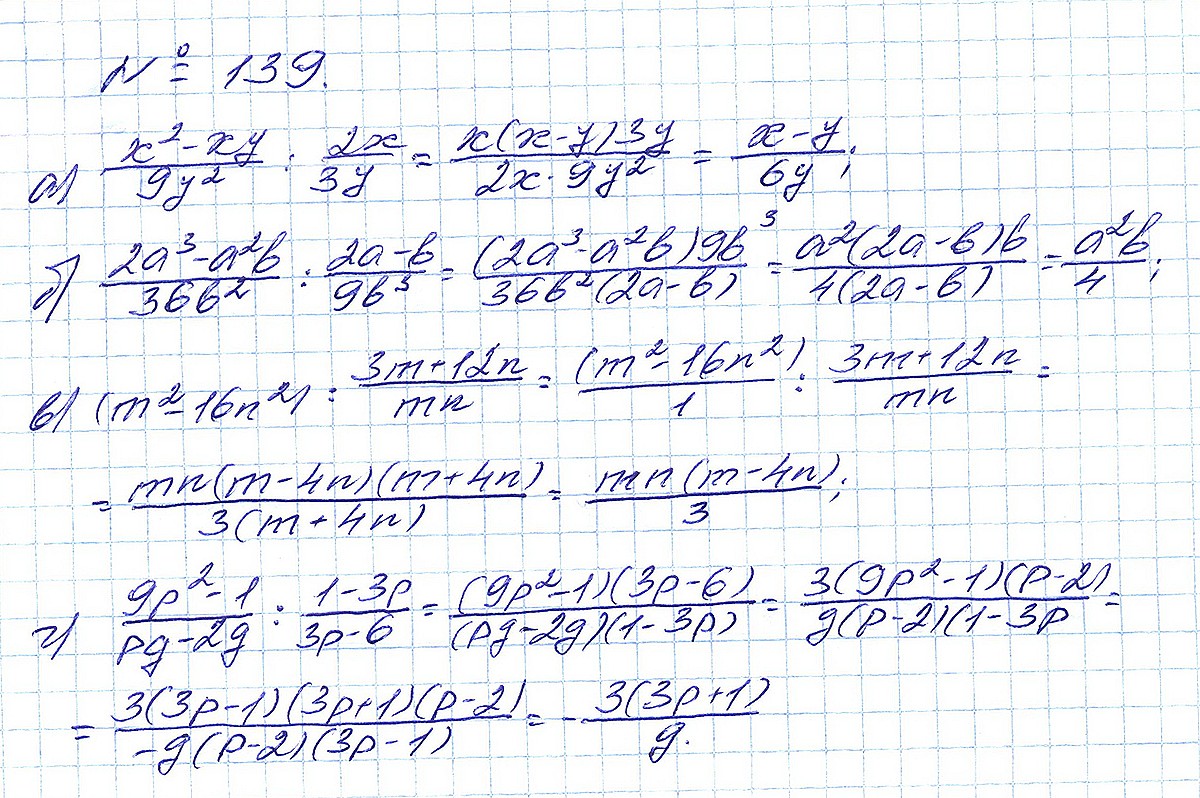 № 139.
а) (x² - xy)/(9y²) : (2x)/(3y) = (x(x-y)3y)/(2x·9y²) = (x-y)/(6y);
б) (2a³-a²b)/(36b²) : (2a-b)/(9b³) = ((2a³-a²b)9b³)/(36b²(2a-b)) = (a²(2a-b)b)/(4(2a-b)) = (a²b)/4;
в) (m²-16n²) : (3m+12n)/(mn) = (m²-16n²)/1 : (3m+12n)/(mn) =
= (mn(m-4n)(m+4n))/(3(m+4n)) = (mn(m-4n))/3;
г) (9p²-1)/(pg-2g) : (1-3p)/(3p-6) = ((9p²-1)(3p-6))/((pg-2g)(1-3p)) = (3(9p²-1)(p-2))/(g(p-2)(1-3p) =
= (3(3p-1)(3p+1)(p-2))/(-g(p-2)(3p-1)) = -(3(3p+1))/g.